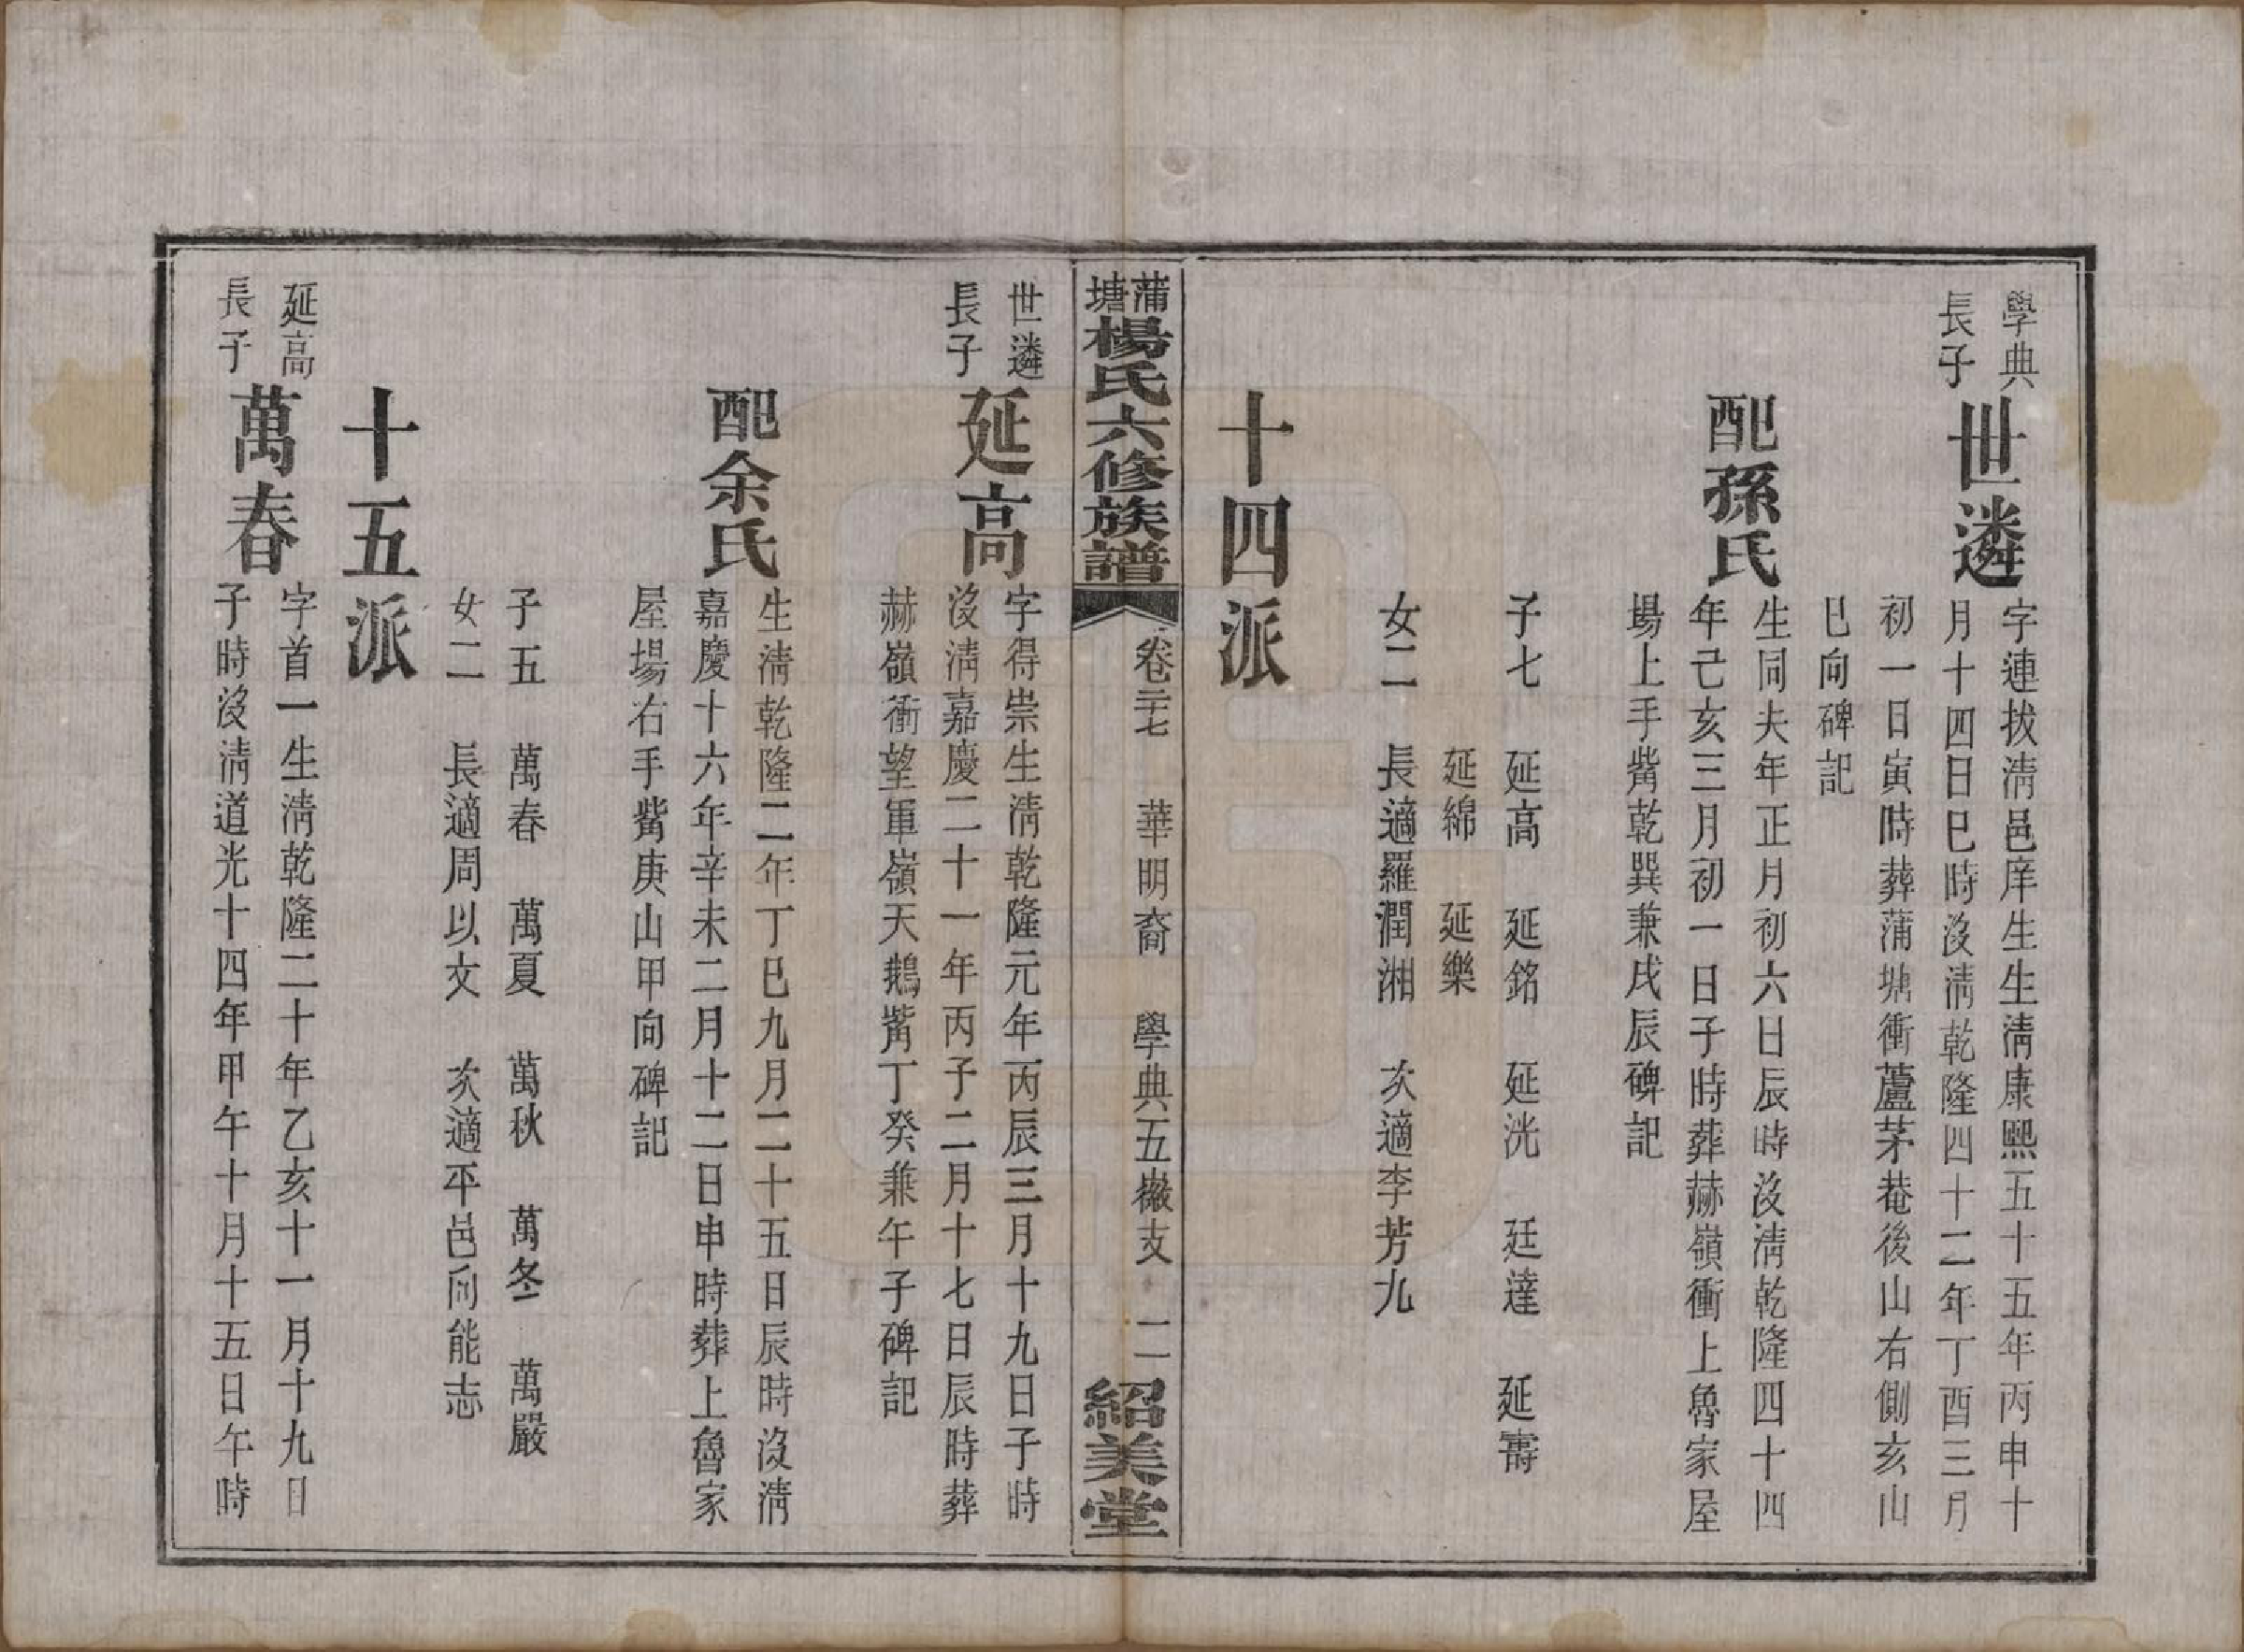 學典
長子
世遴
字連拔清邑庠生生清康熙五十五年丙申十
月十四日巳時沒清乾隆四十二年丁酉三月
初一日寅時葬蒲塘衝蘆茅菴後山右側亥山
巳向碑記
配孫氏
生同夫年正月初六日辰時沒清乾隆四十四
年己亥三月初一日子時葬赫嶺衝上魯家屋
場上手觜乾巽兼戌辰碑記
子七 延高 延銘 延洸 廷達 延壽
延綿 延樂
女二 長適羅潤湘 次適李芳九
十四派
蒲塘楊氏六修族譜
卷二十七 華明裔 學典五嶽支 二
紹美堂
世遴
長子
延高
字得崇生清乾隆元年丙辰三月十九日子時
沒清嘉慶二十一年丙子二月十七日辰時葬
赫嶺衝望軍嶺天鵝觜丁癸兼午子碑記
配余氏
生清乾隆二年丁巳九月二十五日辰時沒清
嘉慶十六年辛未二月十二日申時葬上魯家
屋場右手觜庚山甲向碑記
子五 萬春 萬夏 萬秋 萬冬 萬嚴
女二 長適周以文 次適平邑向能志
十五派
延高
長子
萬春
字首一生清乾隆二十年乙亥十一月十九日
子時沒清道光十四年甲午十月十五日午時